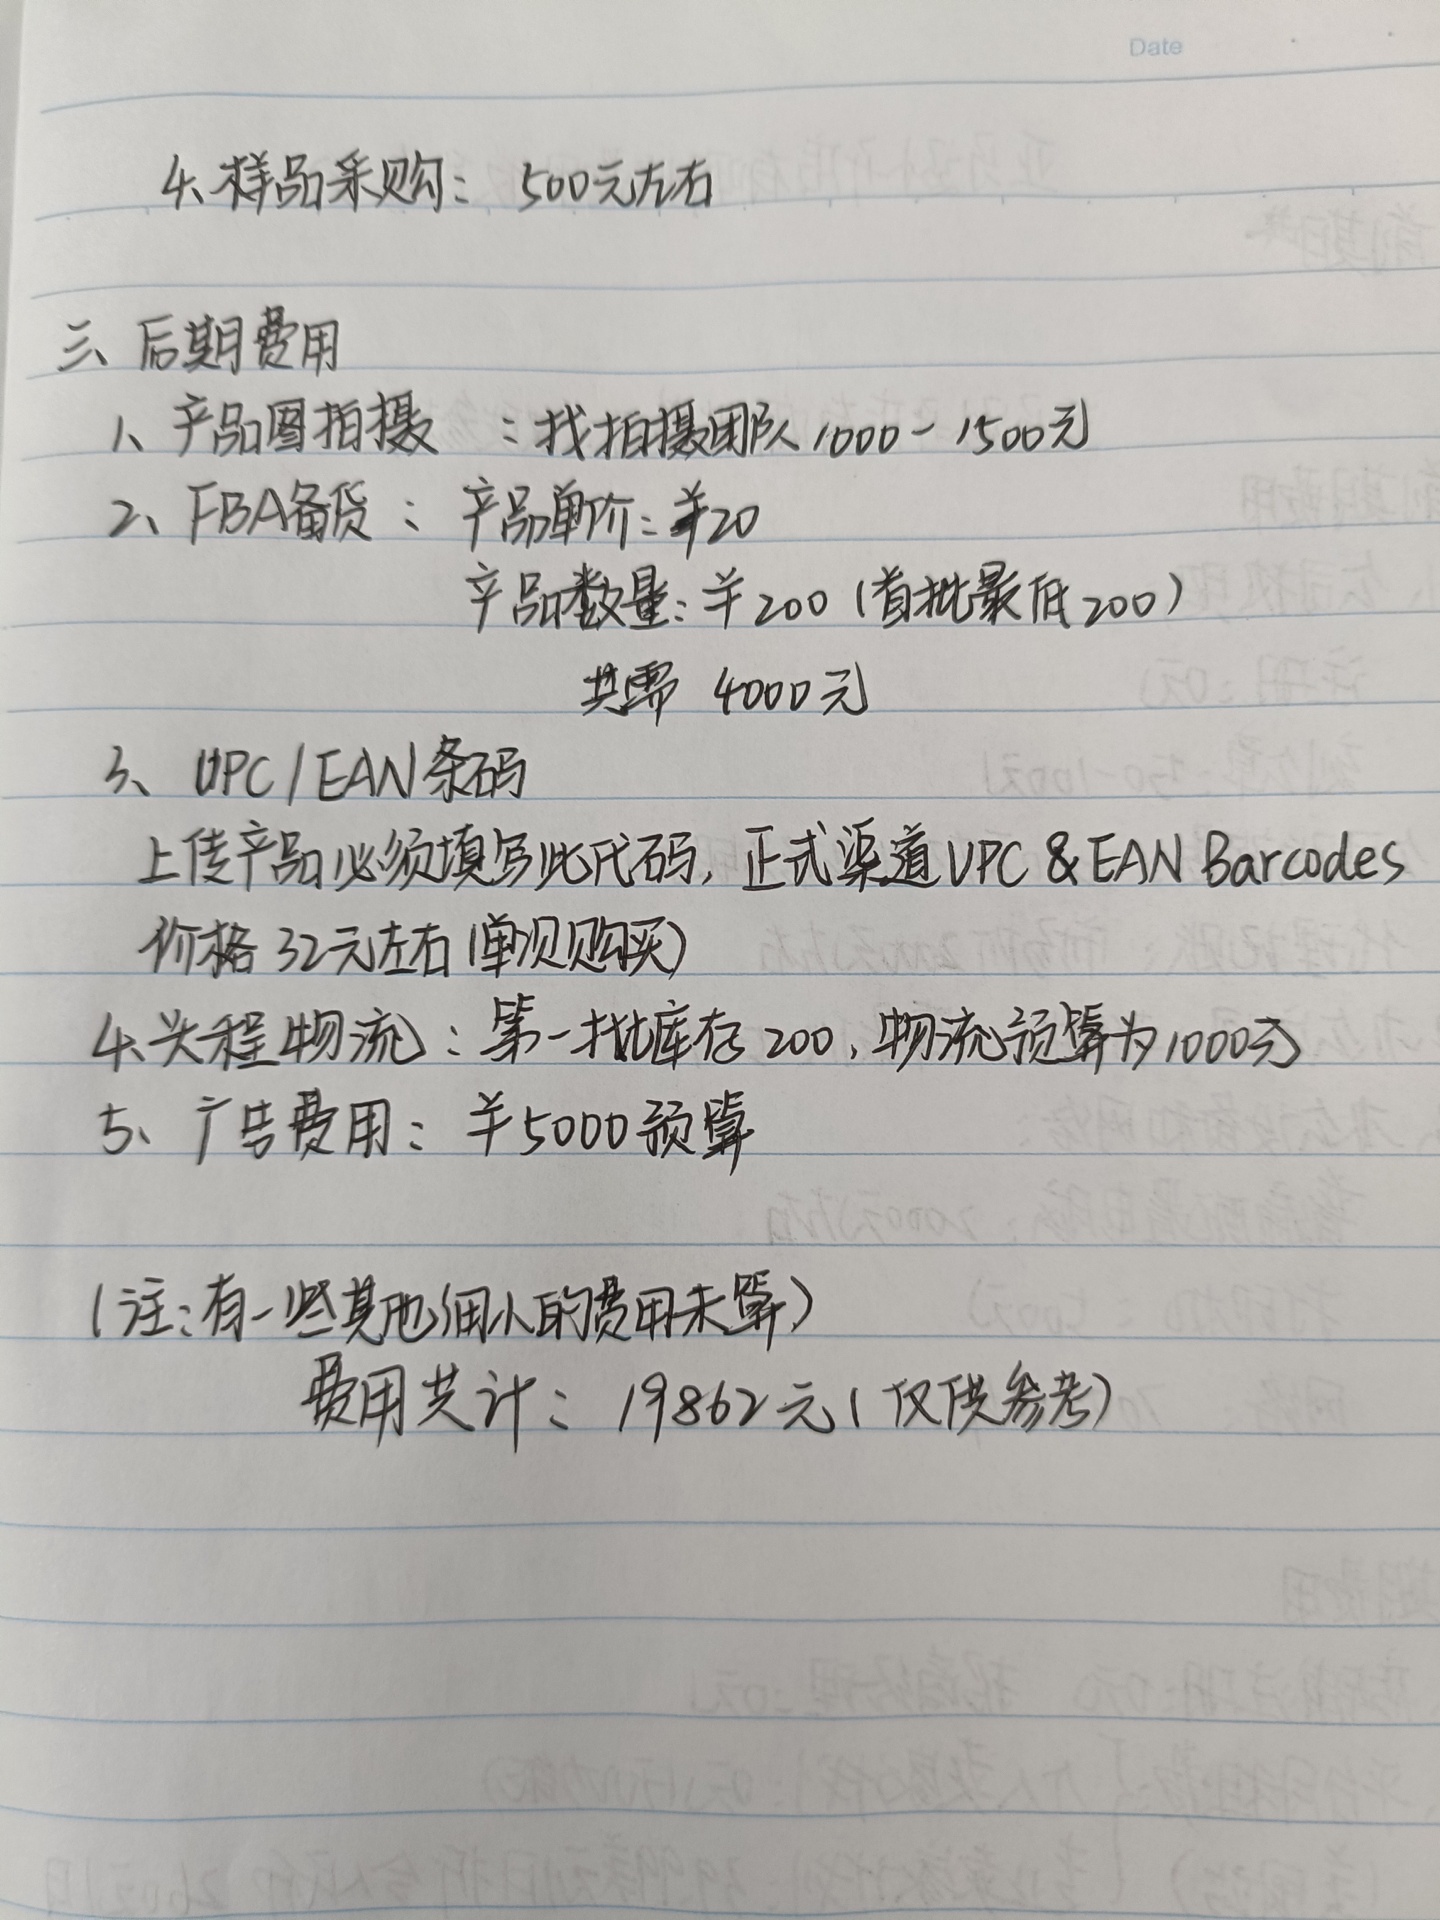 Date
4、样品采购：500元左右
三、后期费用
1、产品图拍摄：找拍摄团队1000-1500元
2、FBA备货：产品单价：¥20
产品数量：¥200（首批最低200）
共需 4000元
3、UPC/EAN条码
上传产品必须填写此代码，正式渠道UPC&EAN Barcodes
价格32元左右（单次购买）
4、头程物流：第一批库存200，物流预算为1000元
5、广告费用：¥5000预算
（注：有一些其他细小的费用未算）
费用共计：19862元（仅供参考）